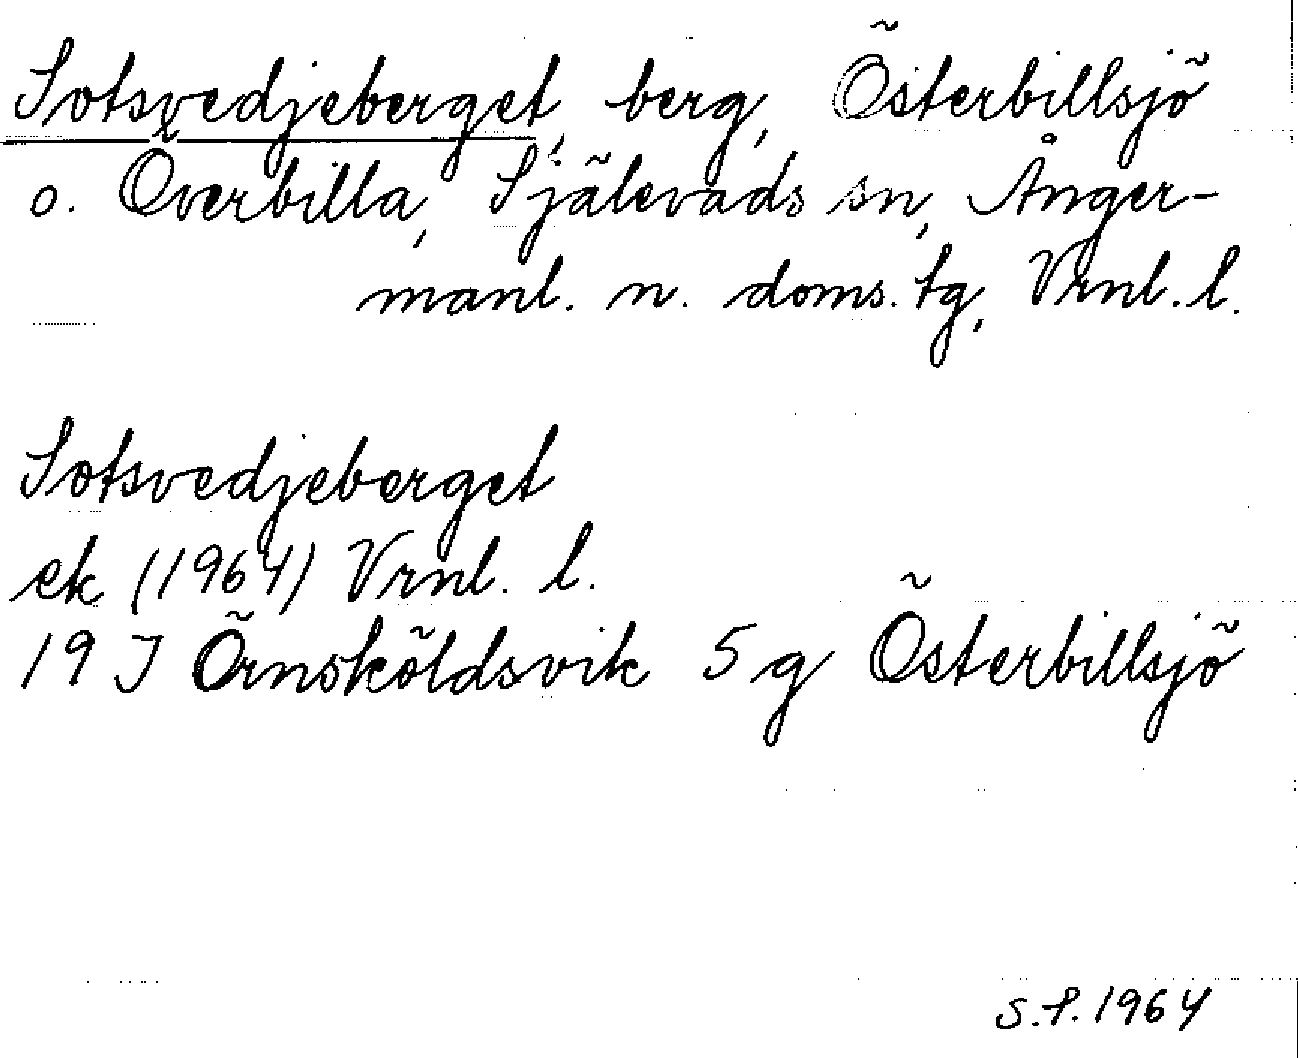 Sotsvedjeberget, berg, Österbillsjö
o. Överbilla, Själevads sn, Ånger-
manl. n. doms. tg, Vrnl. l.
Sotsvedjeberget
ek (1964) Vrnl. l.
19 J Örnsköldsvik 5 g Österbillsjö
S.P. 1964